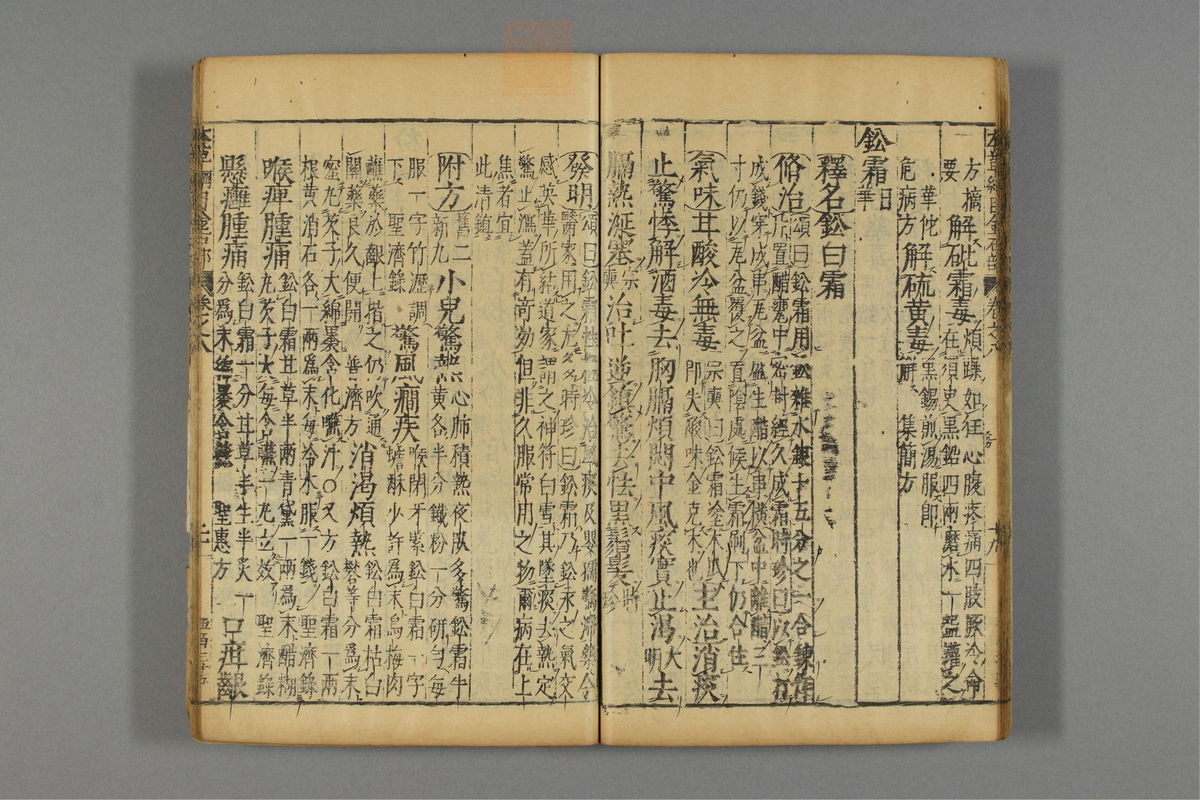 方摘解砒霜毒煩躁如狂心腹疼痛四肢厥冷命
要在須臾黑鉛四兩磨水一盌灌之
華佗危病方解硫黃毒黑錫煎湯服即解集簡方
鈆霜日華
釋名鈆白霜
脩治頌曰鈆霜用鈆雜水銀十五分之一合鍊作
片置醋甕中密封經久成霜時珍曰以鈆打
成錢穿成串瓦盆盛生醋以串橫盆中離醋三
寸仍以瓦盆覆之置陰處候生霜刷下仍合住
氣味甘酸冷無毒宗奭曰鈆霜塗木瓜即失酸味金克木也主治消痰
止驚悸解酒毒去胸膈煩悶中風痰實止渴大明去
膈熱涎塞宗奭治吐逆鎮驚去怯黑鬚髮時珍
發明頌曰鈆霜性極冷治風痰及嬰孺驚滯藥今
醫家用之尤多時珍曰鈆霜乃鈆汞之氣交
感英華所結道家謂之神符白雪其墜痰去熱定
驚止瀉蓋有奇効但非久服常用之物爾病在上
焦者宜此清鎮
附方舊二新九小兒驚熱心肺積熱夜臥多驚鈆霜牛
黃各半分鐵粉一分研勻每
服一字竹瀝調下聖濟錄驚風癇疾喉閉牙紧鈆白霜一字
蟾酥少許為末烏梅肉
蘸藥於齦上揩之仍吹通
關藥良久便開普濟方消渴煩熱鈆白霜枯白
礬等分為末
蜜丸芡子大綿裹含化嚥汁○又方鈆白霜一兩
根黃消石各一兩為末每冷水服一錢聖濟錄
喉痺腫痛鈆白霜甘草半兩青黛一兩為末醋糊
丸芡子大每含嚥一丸立效聖濟錄
懸癰腫痛鈆白霜一分甘草半生半炙一
分爲末綿裹含嚥聖惠方口疳齦